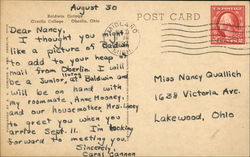 August 30
Baldwin Cottage
Oberlin College Oberlin, Ohio
POST CARD
Dear Nancy,
I thought you might
like a picture of Baldwin
to add to your heap of
mail from Oberlin. I will
be a Junior, at Baldwin and
will be on hand with
my roommate, Anne Mooney,
and our housemother, Mrs.
to greet you when you
arrive Sept. 11. I'm looking
forward to meeting you.
Sincerely,
Carol Cannon
Miss Nancy Quallich
1638 Victoria Ave.
Lakewood, Ohio